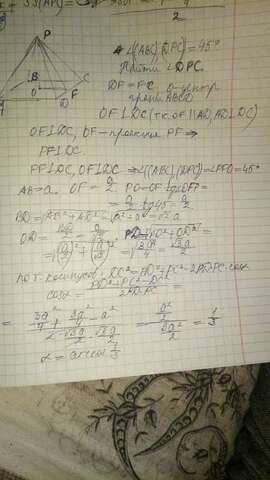 P
B
C
O
D
F
∠((ABC),(DPC))=45°
Найти ∠DPC.
DF=FC, O-центр
грани ABCD
OF⊥DC (т.к. OF||AD, AD⊥DC)
OF⊥DC, OF-проекция PF ⇒
PF⊥DC.
PF⊥DC, OF⊥DC ⇒ ∠((ABC),(DPC))=∠PFO=45°
AB=a. OF=a/2 PO=OF·tg∠OFP=
=a/2·tg45=a/2
BD=√AB²+AD²=√a²+a²=√2a
OD=BD/2=a/√2 PD=√PO²+OD²=
=√(a/2)²+(a/√2)²=√3a²/4=√3a/2
По т. косинусов: DC²=PD²+PC²-2PD·PC·cosα
cosα=PD²+PC²-DC²/2PD·PC=
=3a²/4+3a²/4-a²/2·√3a/2·√3a/2=a²/2/3a²/2=1/3
α=arccos 1/3